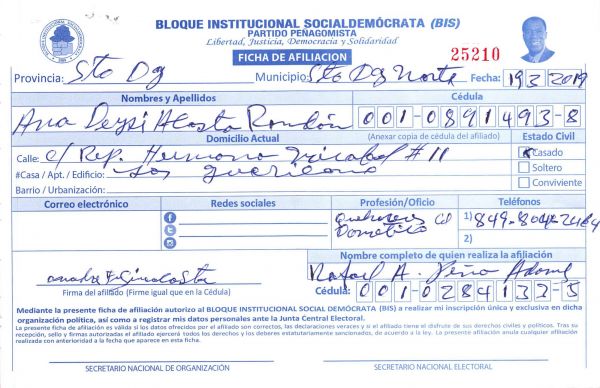 BLOQUE INSTITUCIONAL SOCIALDEMÓCRATA (BIS)
PARTIDO PEÑAGOMISTA
Libertad, Justicia, Democracia y Solidaridad
FICHA DE AFILIACION
25210
Provincia: Sto Dgo Municipio: Sto Dgo Norte Fecha: 19 3 2019
Nombres y Apellidos Cédula
Ana Deysi Acosta Rondón 001-0891493-8
Domicilio Actual (Anexar copia de cédula del afiliado) Estado Civil
Calle: c/ Rep. Hermana #11 Casado
#Casa / Apt. / Edificio: Los Soltero
Barrio / Urbanización: Conviviente
Correo electrónico Redes sociales Profesión/Oficio Teléfonos
Quehaceres Domestico
1) 849-804-2464
2)
Nombre completo de quien realiza la afiliación
Rafael A. Peña Adames
Firma del afiliado (Firme igual que en la Cédula) Cédula: 001-0284133-5
Mediante la presente ficha de afiliación autorizo al BLOQUE INSTITUCIONAL SOCIALDEMÓCRATA (BIS) a realizar mi inscripción única y exclusiva en dicha
organización política, así como a registrar mis datos personales ante la Junta Central Electoral.
La presente ficha de afiliación es válida si los datos ofrecidos por el afiliado son correctos, las declaraciones veraces y si el afiliado tiene el disfrute de sus derechos civiles y políticos. Tras su
recepción, sello y firmas autorizadas el afiliado ejercerá todos los derechos y los deberes estatutariamente sancionados, de acuerdo a la ley. La presente afiliación anula cualquier afiliación
realizada con anterioridad a la fecha que aparece en esta ficha.
SECRETARIO NACIONAL DE ORGANIZACIÓN SECRETARIO NACIONAL ELECTORAL